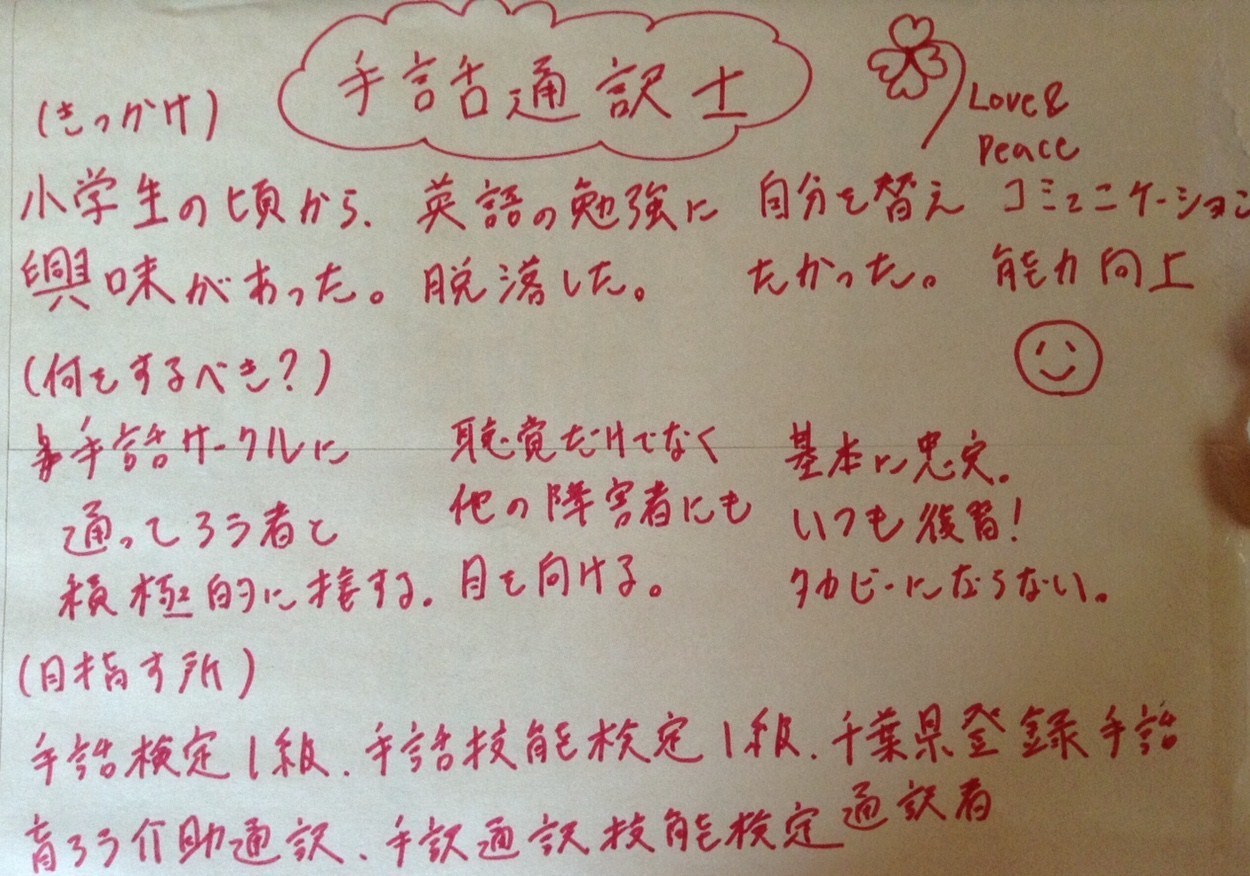 手話通訳士
Love &
Peace
(きっかけ)
小学生の頃から、 英語の勉強に 自分を替え コミュニケーション
興味があった。 脱落した。 たかった。 能力向上
(何をするべき?)
手話サークルに
通ってろう者と
積極的に接する。
聴覚だけでなく
他の障害者にも
目を向ける。
基本に忠実。
いつも復習!
タカビーにならない。
(目指す所)
手話検定1級、手話技能検定1級、千葉県登録手話
通訳者
盲ろう介助通訳、手訳通訳技能検定